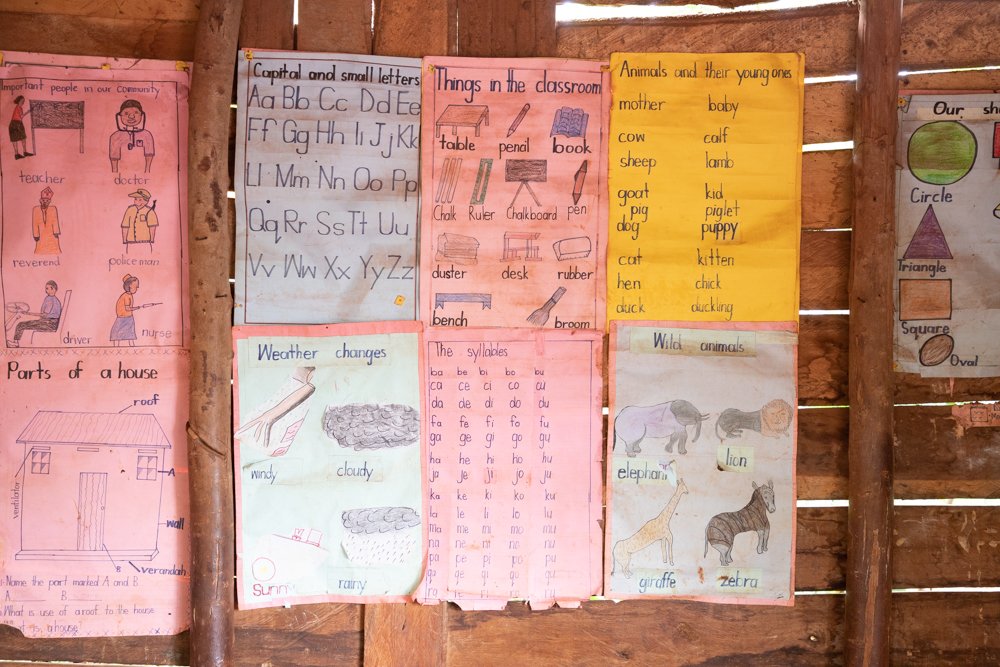 Important people in our community
teacher doctor
reverend policeman
driver nurse
Parts of a house
roof
ventilator
A
wall
B
verandah
Name the part marked A and B
A B
What is use of a roof to the house
a house?
Capital and small letters
Aa Bb Cc Dd Ee
Ff Gg Hh Ii Jj Kk
Ll Mm Nn Oo Pp
Qq Rr Ss Tt Uu
Vv Ww Xx Yy Zz
Weather changes
windy cloudy
Sunny rainy
Things in the classroom
table penal book
Chalk Ruler Chalkboard pen
duster desk rubber
bench broom
The syllables
ba be bi bo bu
ca ce ci co cu
da de di do du
fa fe fi fo fu
ga ge gi go gu
ha he hi ho hu
ja je ji jo ju
ka ke ki ko ku
la le li lo lu
ma me mi mo mu
na ne ni no nu
pa pe pi po pu
Animals and their young ones
mother baby
cow calf
sheep lamb
goat kid
pig piglet
dog puppy
cat kitten
hen chick
duck duckling
Wild animals
elephant lion
giraffe zebra
Our
Circle
Triangle
Square
Oval